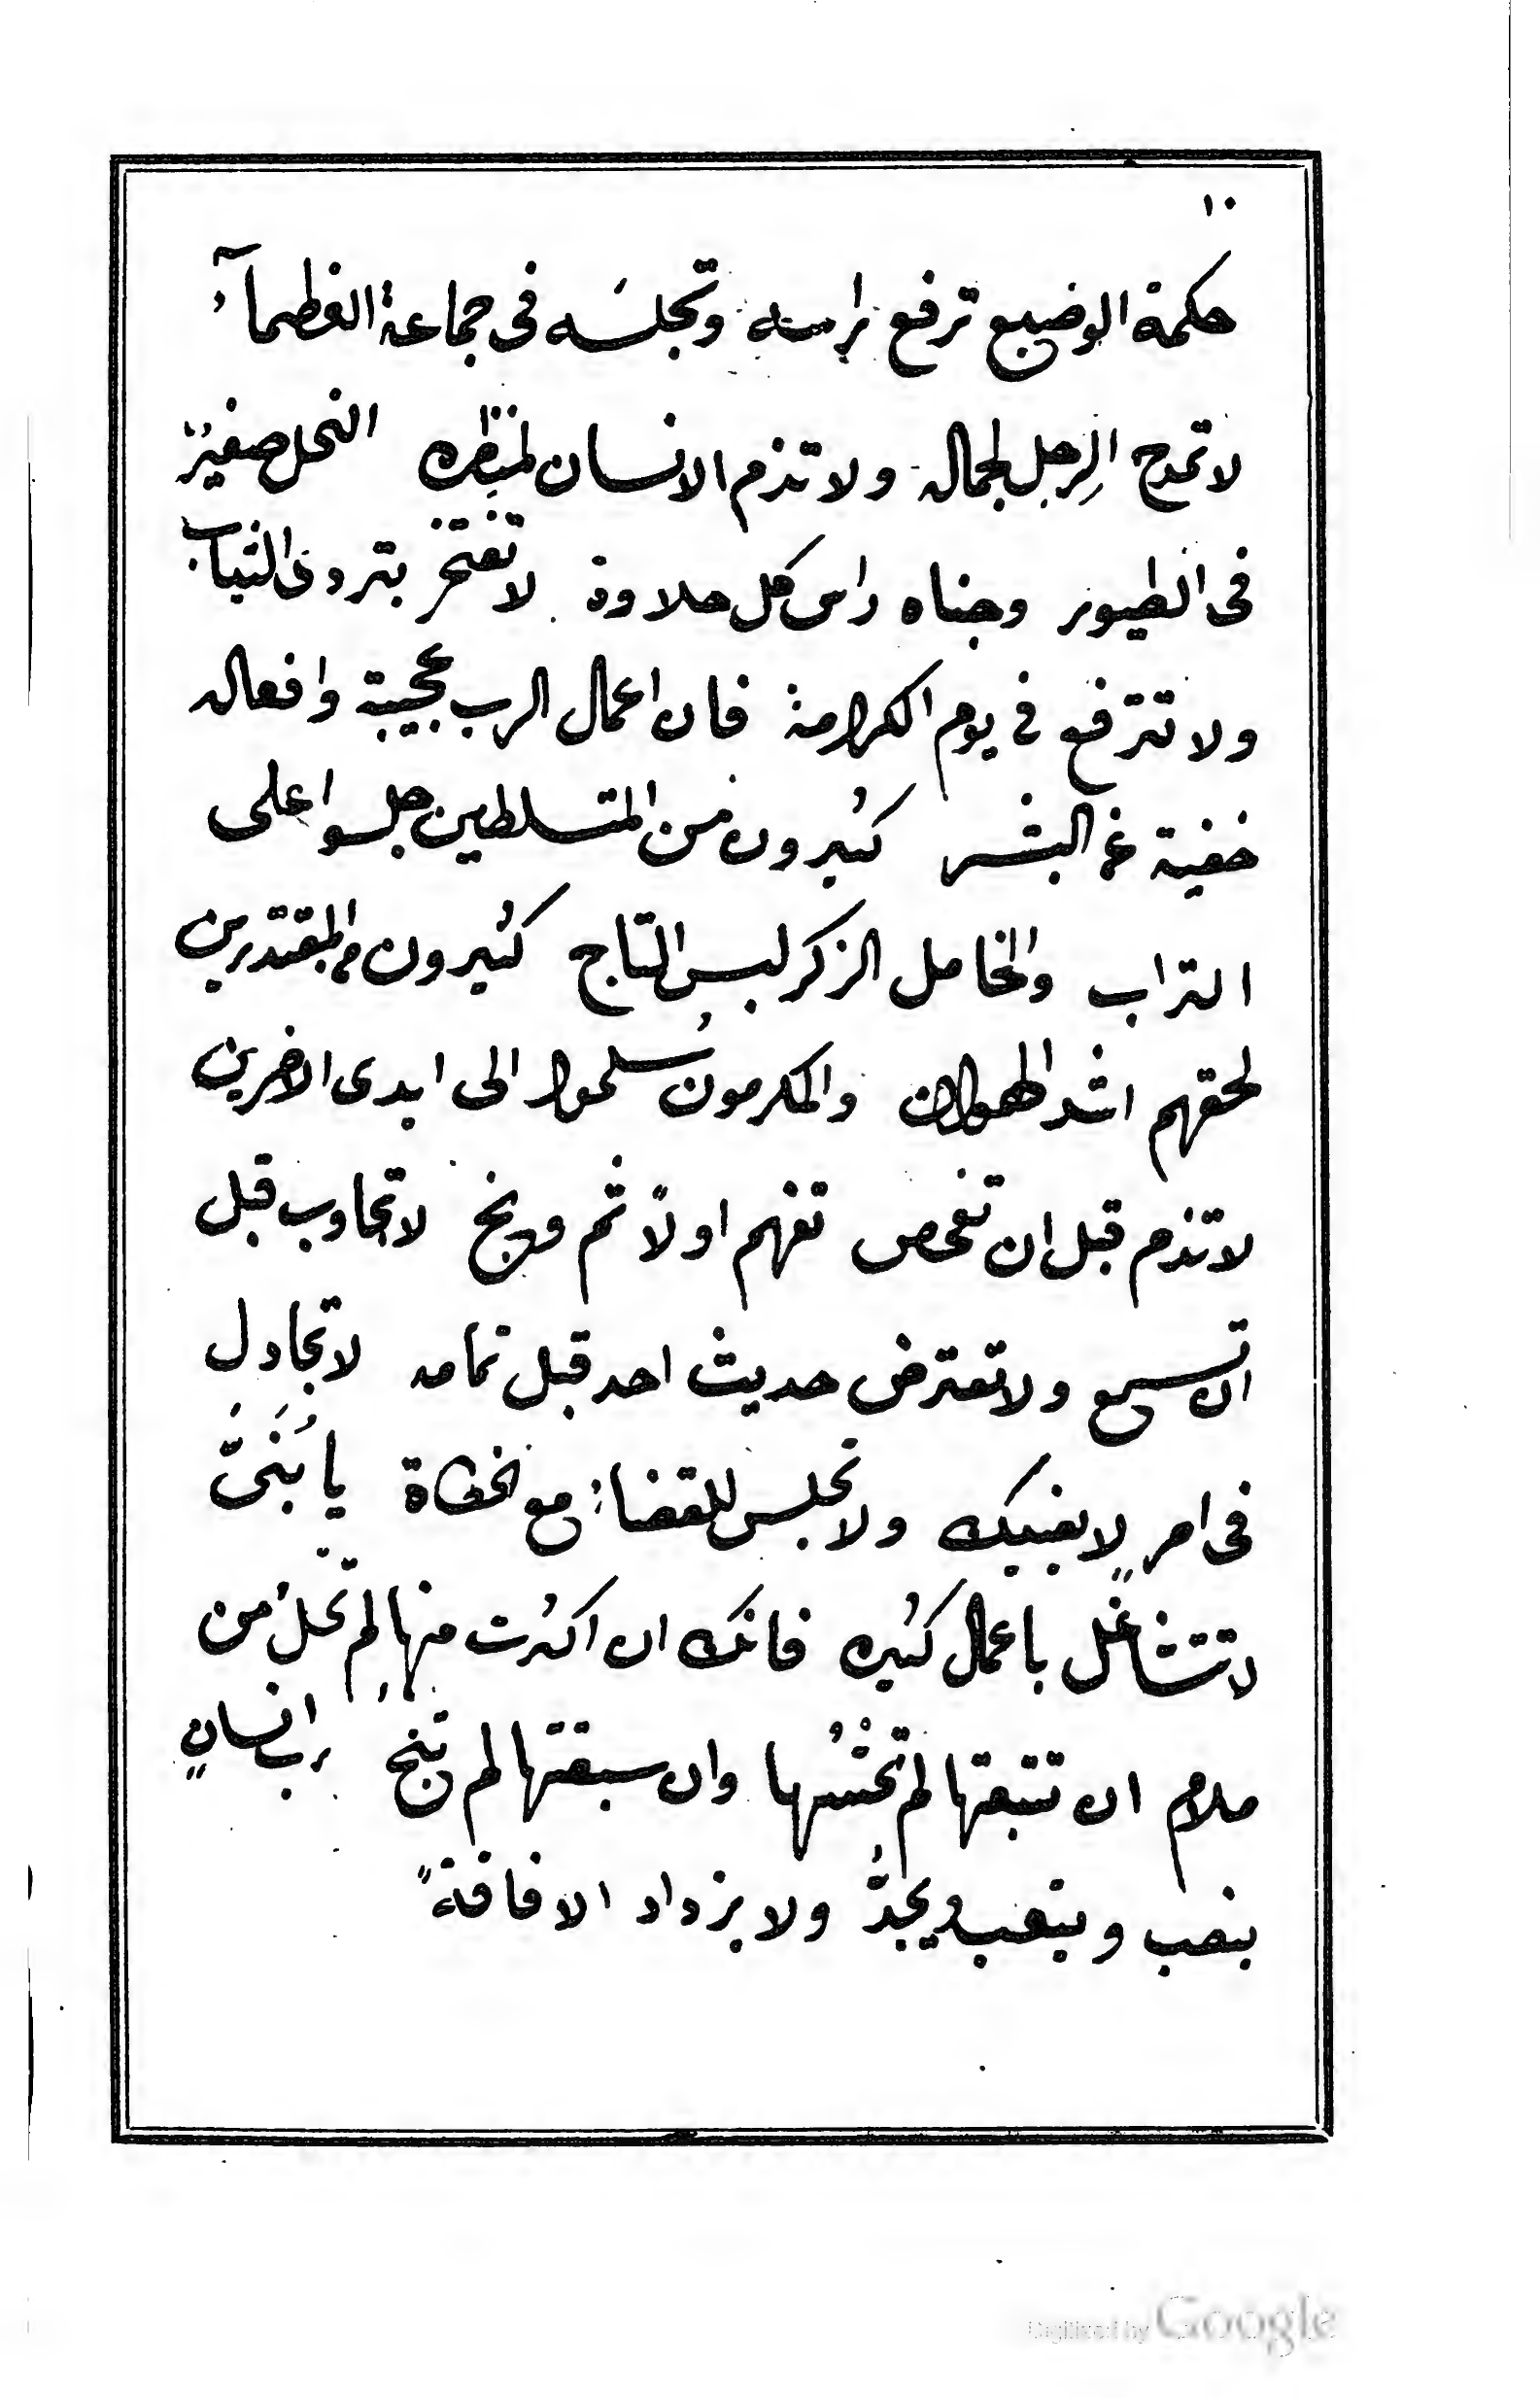 ١٠
حكمة الوضيع ترفع راسه وتجلسه فى جماعة العظمآء
لا تمدح الرجل لجماله ولا تذم الانسان لمنظره النحل صغيرة
فى الطيور وجناه راس كل حلاوة لا تفتخر بتردى الثياب
ولا تترفع فى يوم الكرامة فان اعمال الرب عجيبة وافعاله
خفية عن البشر كثيرون من المتسلطين جلسوا على
التراب والخامل الزكر لبس التاج كثيرون من المقتدرين
لحقهم اشد الهوان والمكرمون سُلموا الى ايدى الاخرين
لا تذم قبل ان تفحص تفهم اولاً ثم وبخ لا تجاوب قبل
ان تسمع ولا تعترض حديث احد قبل تمامه لا تجادل
فى امرٍ لا يعنيك ولا تجلس للقضاء مع الخطاة يا بُنَىَّ
لا تتشاغل باعمال كثيره فانك ان اكثرت منها لم تخلُ من
ملام ان تتبعتها لم تحُشْها وان سبقتها لم تنج رب انسانٍ
ينصب ويتعب ويجدُّ ولا يزداد الا فاقةً
Digitized by Google